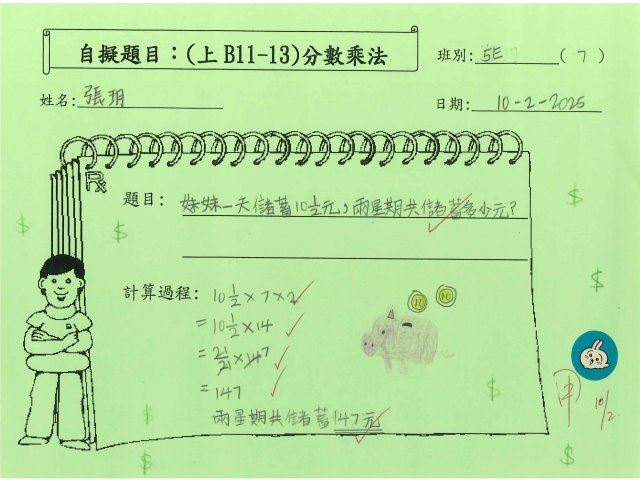 自擬題目：(上 B11-13)分數乘法
班別: 5E ( 7 )
姓名: 張玥
日期: 10-2-2025
題目: 妹妹一天儲蓄10½元，兩星期共儲蓄多少元?
計算過程: 10½×7×2
=10½×14
=21/2×14 7
=147
兩星期共儲蓄147元
甲
10/2
10
10
$
$
$
$
$
$
$
$